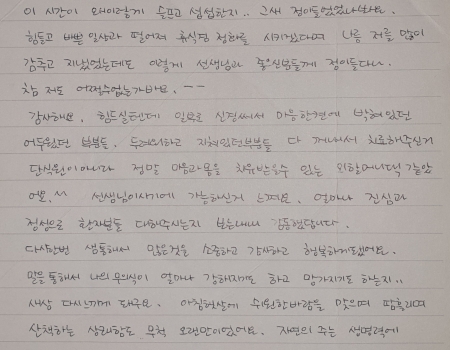 이 시간이 왜이렇게 슬프고 섭섭한지.. 그새 정이들었었나봐요.
힘들고 바쁜 일상과 떨어져 휴식딴 정화를 시키겠다며 나름 저를 많이
감추고 지냈었는데도 이렇게 선생님과 좋으신분들께 정이들다니..
참 저도 어쩔수없는가봐요. ㅡㅡ
감사해요. 힘드실텐데 일일로 신경써서 마음한켠에 박혀있던
어두웠던 부분들, 두려워하고 지쳐있던부분들 다 꺼내서 치료해주신거
단식원이아니라 정말 마음과몸을 치유받을수 있는 외할머니댁 같았
어요.^^ 선생님이시기에 가능하신거 느껴요. 얼마나 진심과
정성으로 환자분들 대해주시는지 보는내내 감동했답니다.
다시한번 샘통해서 많은것을 소중하고 감사하고 행복하게됐어요.
말을통해서 나의 무의식이 얼마나 강해지기도 하고 망가지기도 하는지..
새삼 다시느끼게 돼구요. 아침햇살에 쉬원한바람을 맞으며 땀흘리며
산책하는 상쾌함도 무척 오랜만이었어요. 자연의 주는 생명력에